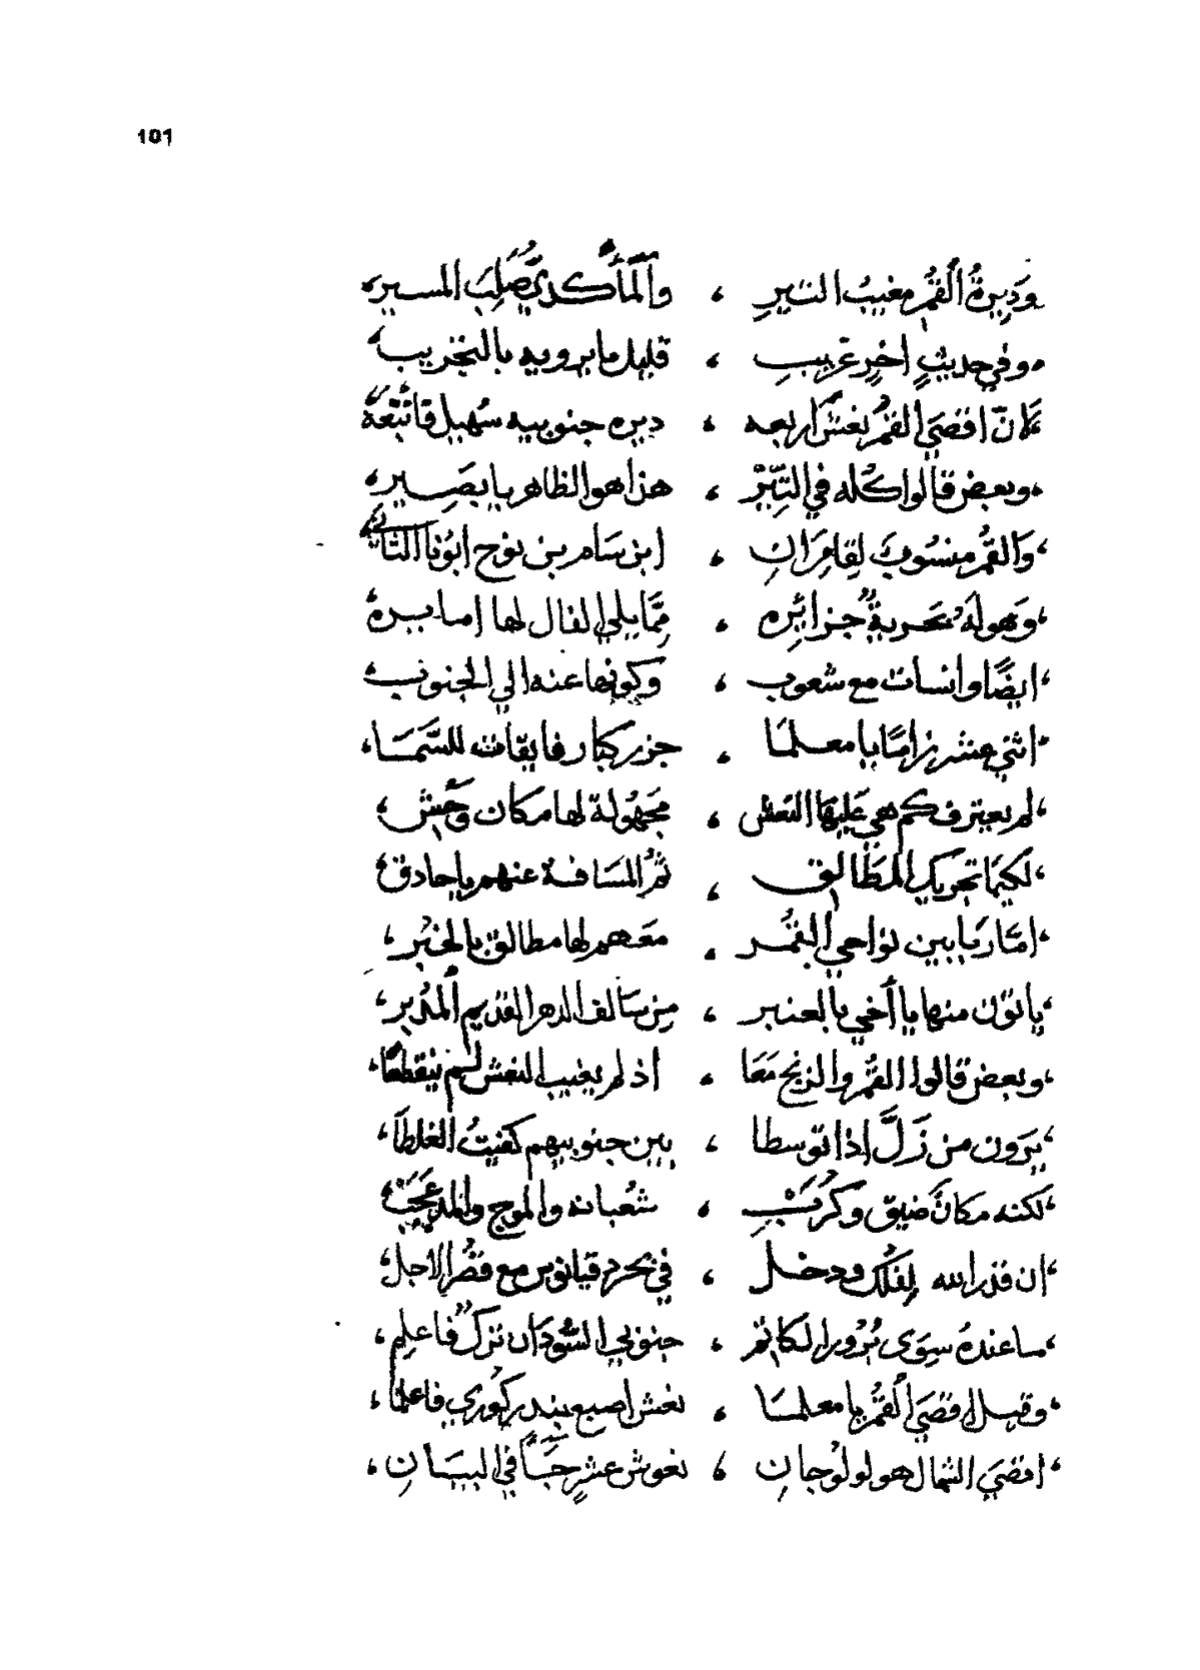 101
وديرةُ القُمر مغيبُ النيرِ ، والمأكدي صُلبَ المسيرِ،
،وفي حديثٍ اخرٍ غريبِ ، قليل ما يرويه بالتخريب،
،كانّ اقصَي القُمر نعشٌ اربعه ، ديره جنوبيه سُهيل فاتبعهُ
،وبعض قالوا كُله في التِيَرْ ، هذا هو الظاهر يا بصِيرِ،
،وَالقُمر منسُوبٌ لِقامِرَانِ ، ابن سَام بن نوح ابوُنا الثاني
،وَهو لَهُ بحرية جزائره ، مِمّا يلي الفال لها اسايره
،ايضًا وانسات مع شعوب ، وكونها عنه الي الجنوب،
،اثني عشر زامًا يا معلمَا ، جزر كبار فايقات للسَّمَا،
،لم يعترف كم هي عَليها النعش ، مجَهُولة لها مكان وَحْش،
،لكيما تجريك المطَالق ، ثمُّ المسَافة عنهم يا حادق،
،امّا ريَا بين نوَاحي القُمر ، معَهم لها مطالق بالخبْر،
،ياتوْن منها يا أخي بالعنبر ، مِن سَالف الدهر القديم المُدْبرِ،
،وبعض قالوا القُمر والزنج مَعَا ، اذ لم يغيب النعش لم ينقطعَا،
،يرَون من زَلَّ اذا توسطا ، بين جنوبيهم كفيتُ الغلطَا،
،لكنه مكانٌ ضيق وكرُ نَسْبِ ، شعبانه والموج والمد عَجَبْ
،ان قدر الله لِفلك ودخل ، في بحر دقيانوس مع قصُر الاجل،
،ساعدهُ سِوَى يُزْور الكانم ، جنوبي السُّودَان تنزلُ فاعلم،
،وقيل اقصَي القُمر يا معلمَا ، نعش اصبع بندر كُوري فاعلما،
،اقصَي الشمال هو لولوْجانِ ، نعوش عشرٍ حبّاً في البيَانِ،